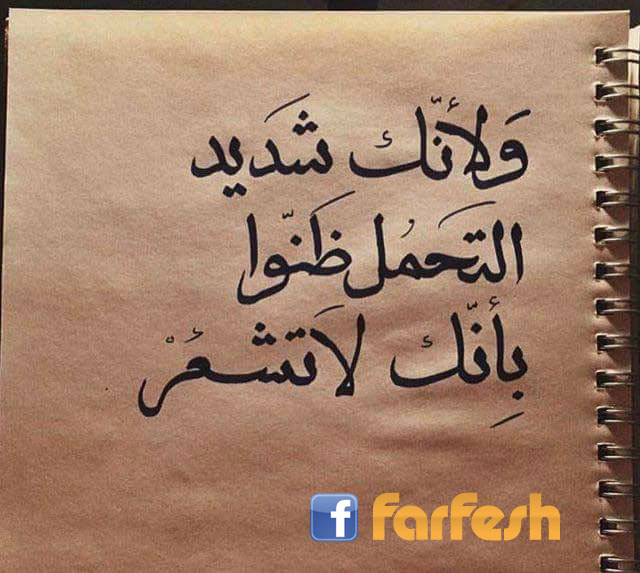 وَلأنّك شَديد
التحَمُل ظَنّوا
بِأنّك لاَتشعُرْ
f farfesh